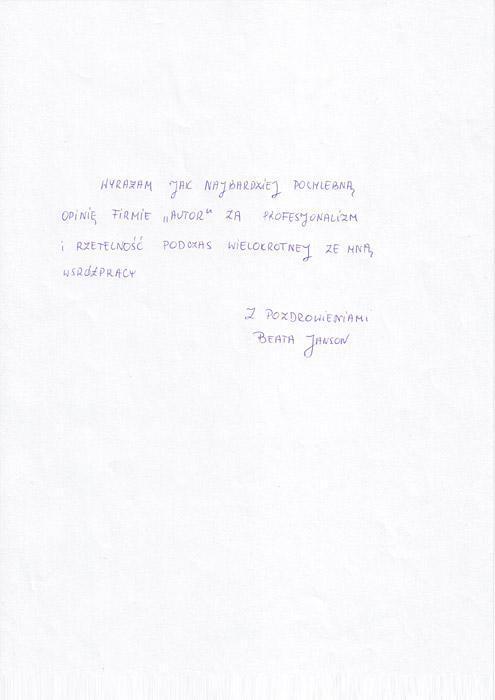 WYRAŻAM JAK NAJBARDZIEJ POCHLEBNĄ
OPINIĘ FIRMIE „AUTOR" ZA PROFESJONALIZM
I RZETELNOŚĆ PODCZAS WIELOKROTNEJ ZE MNĄ
WSPÓŁPRACY
Z POZDROWIENIAMI
BEATA JANSON